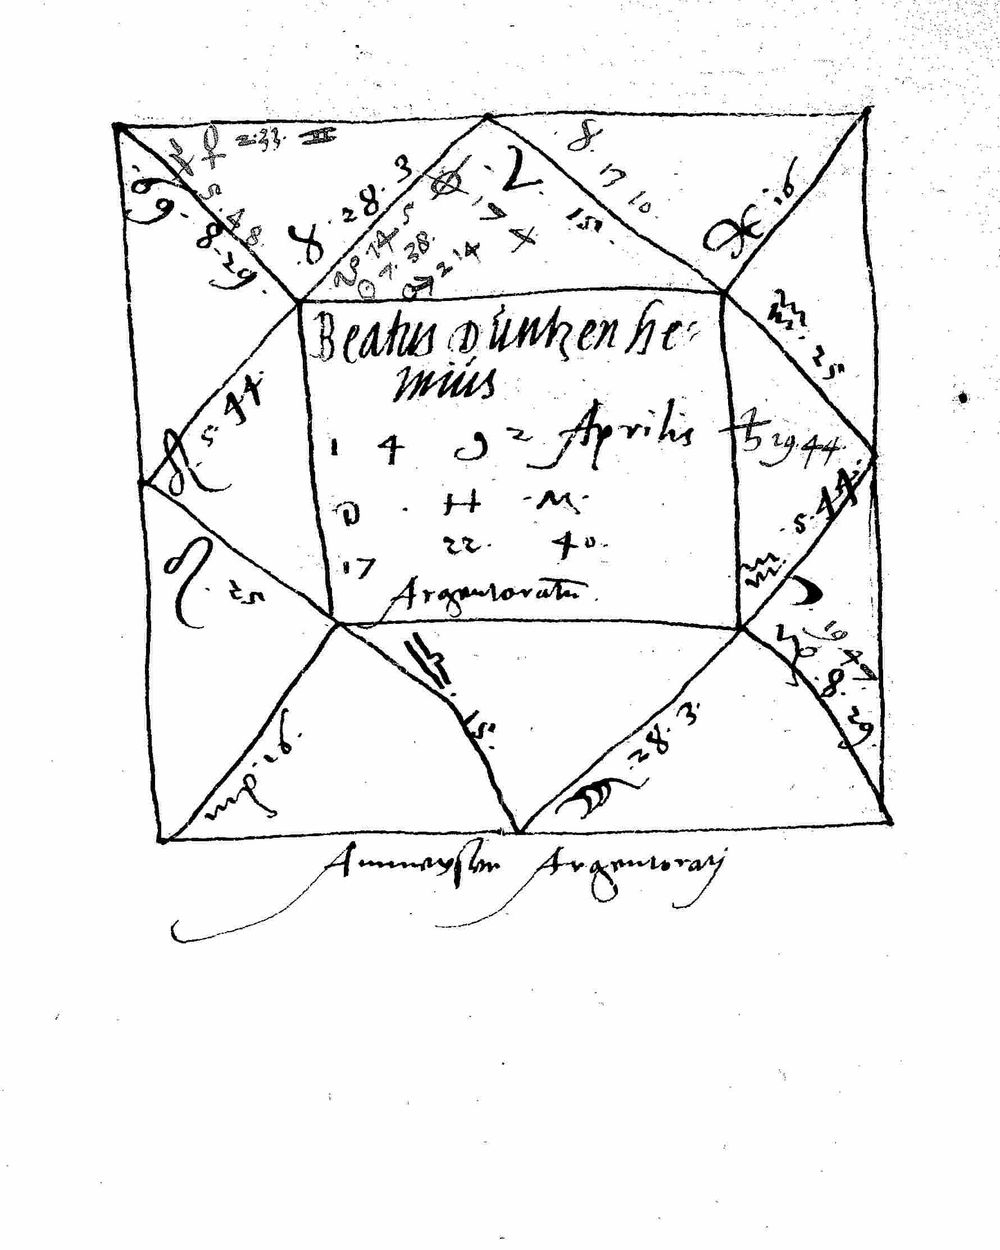 ♀ 2.33. ♊
5.48
♋. 8.29.
♉. 28. 3
♈. 15.
8.
13 10.
♓ 16
♒. 25.
☉ 7. 38.
♂ 2 14
Beatus Düntzenhe-
miüs
1 4 9 2 Aprilis
D . H . M.
17 22. 40.
Argentoratū.
♄ 29.44.
♒ 5.44
♌ 5.44
☽
19 47
♑ .8.29.
♌. 25
♍ 16.
♎. 15.
♏ 28.3.
Ammeyster Argentorati